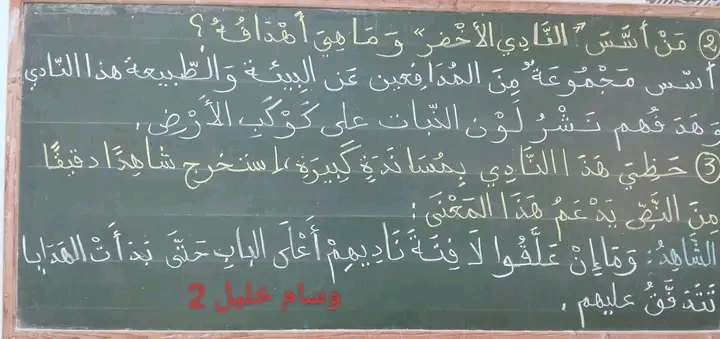 ② مَنْ أَسَّسَ "النَّادِي الأَخْضَر" وَمَا هِيَ أَهْدَافُهُ؟
أسّس مَجْمُوعَةٌ مِنَ المُدَافِعين عَنِ البِيئَة وَالطَّبِيعة هذا النّادي
وَهَدَفُهم نَشْرُ لَوْن النّبات على كَوْكَبِ الأَرْضِ.
③ حَظِيَ هَذَا النَّادِي بِمُسَانَدَةٍ كَبِيرَةٍ، استخرج شاهِدًا دقيقًا
مِنَ النَّصِّ يَدْعَمُ هَذَا المَعْنَى:
الشَّاهِدُ: وَمَا إِنْ عَلَّقُوا لَافِتَةَ نَادِيهِمْ أَعْلَى البابِ حَتَّى بَدَأَتْ الهَدَايا
تَتَدَفَّقُ عليهم.
وسام خليل 2